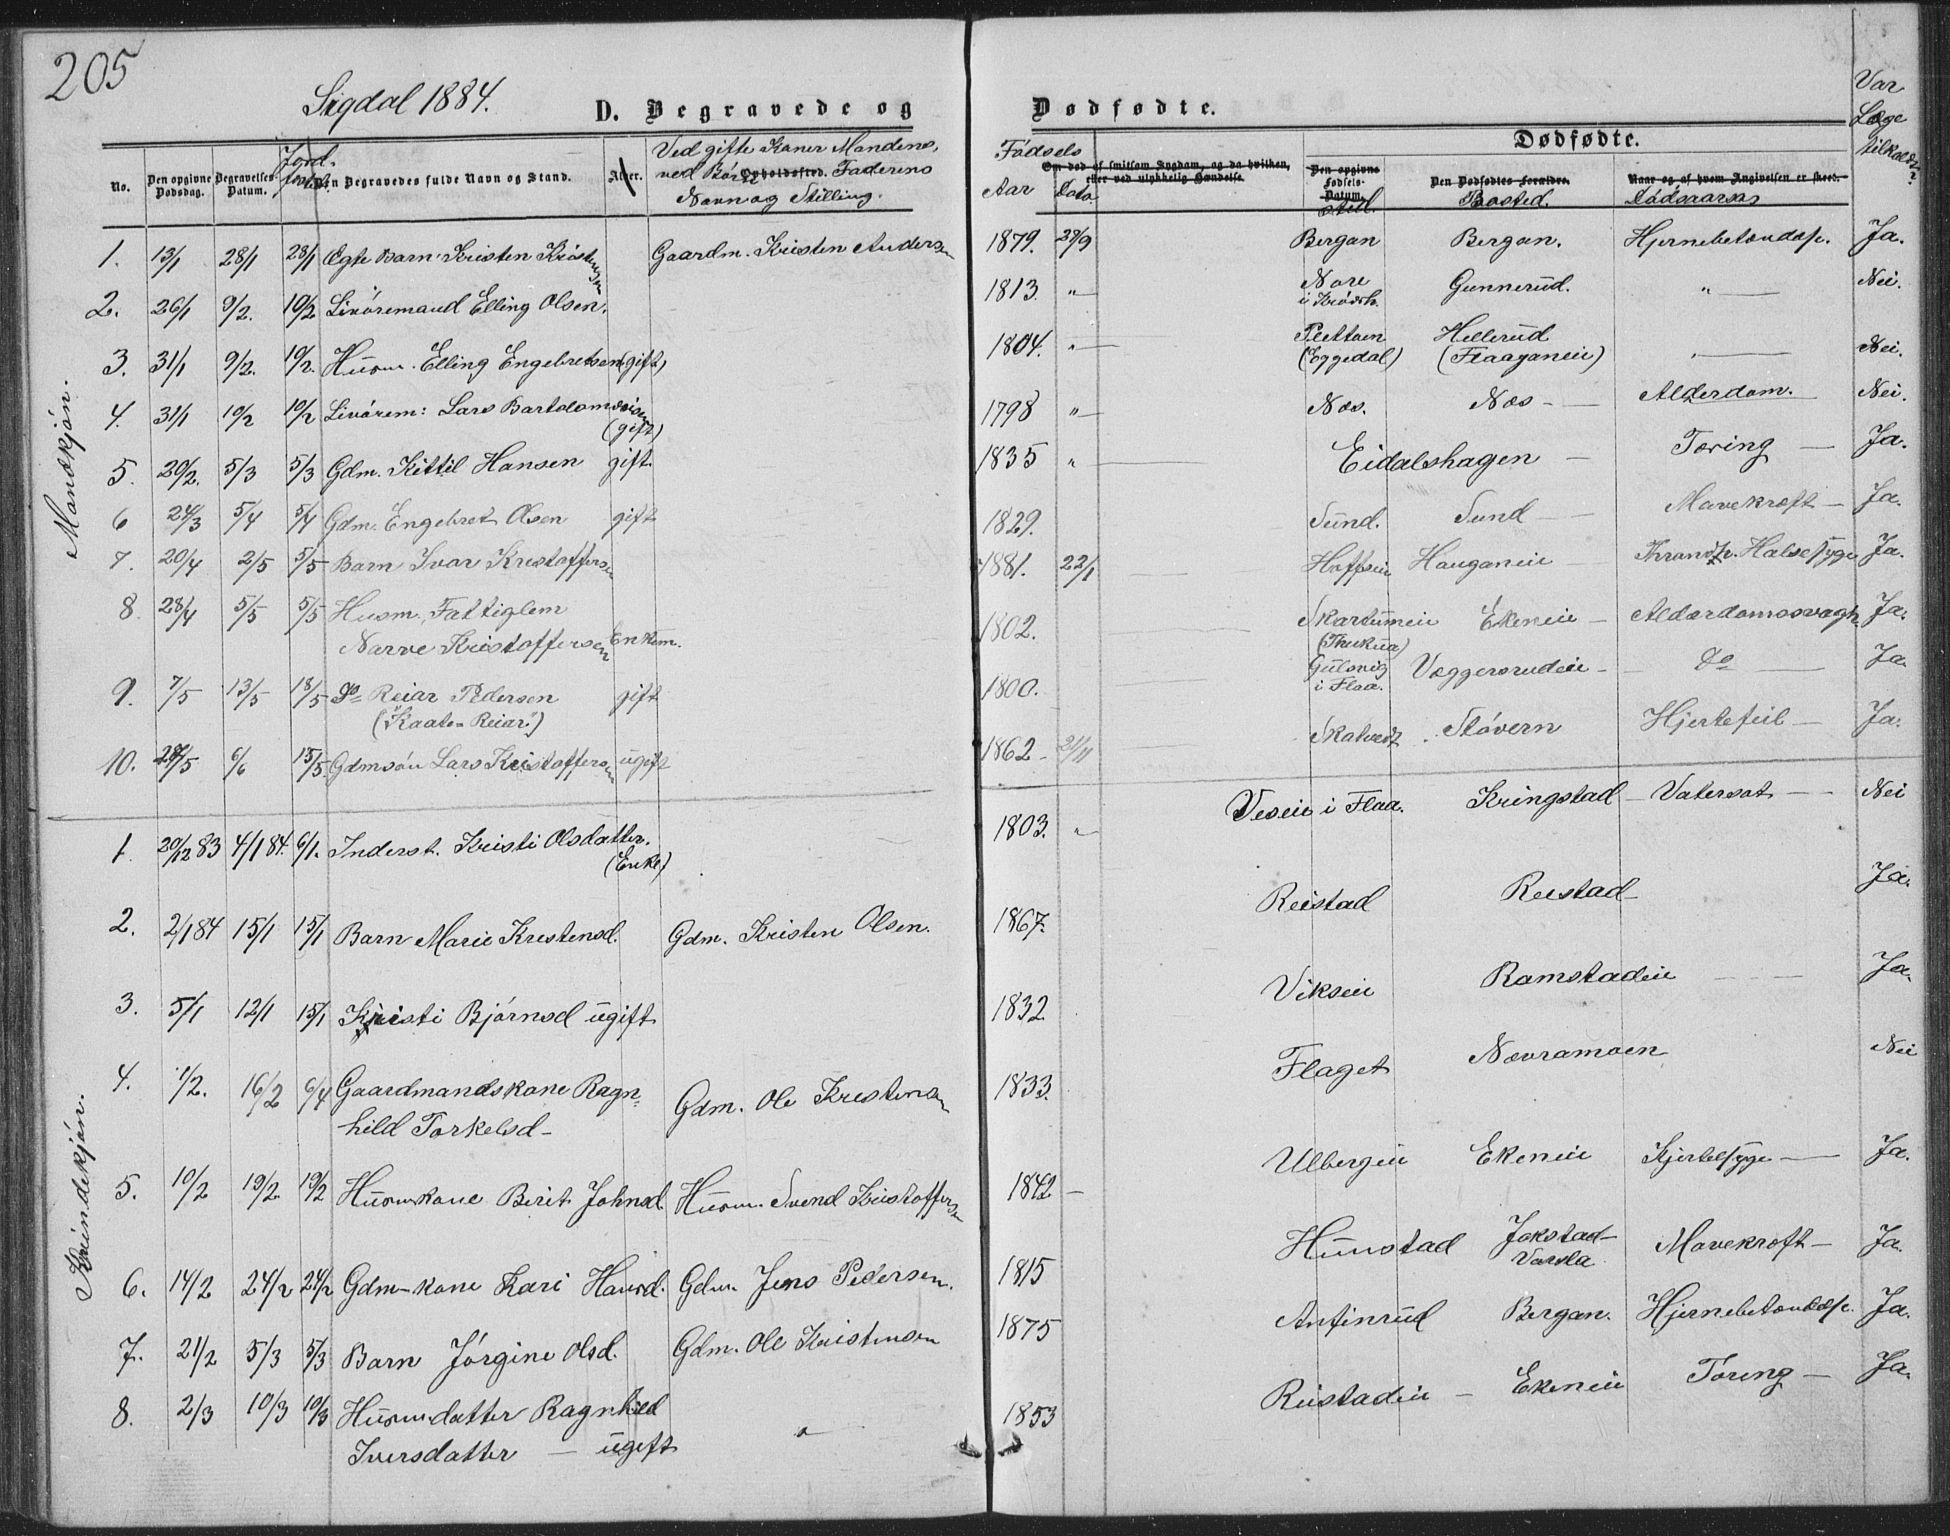 205
Sigdal 1884.
D. Begravede og Dødfødte.
No. Den opgivne Dødsdag. Begravelses-Datum. Jord- Den Begravedes fulde Navn og Stand. Alder. Ved gifte Koner Mandens, ved Børn Faderens Navn og Stilling. Opholdssted.
Fødsels Aar Dato Om død af smitsom Sygdom, og da hvilken, eller ved ulykkelig Hændelse. Dødfødte. Den opgivne Fødsels-Datum. sted. Den Dødfødtes Forældre. Bosted. Naar og af hvem Angivelsen er skeet. Dødsaarsag Var Læge tilkaldt?
Mandkjøn.
1. 13/1 28/1 28/1 Ægte Barn Kristen Kristensen Gaardm. Kristen Andersen 1879. 29/9 Bergan Bergan. Hjernebetændelse. Ja.
2. 26/1 9/2. 10/2 Livøremand Elling Olsen. 1813. " Nore i Krødsh. Gunnerud. " Nei.
3. 31/1 9/2. 10/2. Husm. Elling Engebretsen (gift) 1804. " Plettom (Eggedal) Hellerud (Flaaganeie) " Nei.
4. 31/1 10/2 10/2 Livørem: Lars Bartolomæisen (gift) 1798 " Næs. Næs - Alderdom. Nei.
5. 20/2. 5/3 5/3 Gdm. Kittil Hansen gift. 1835 " Eidalshagen - Tæring Ja.
6 24/3 5/4 5/4 Gdm. Engebret Olsen gift 1829. Sund. Sund Mavekræft Ja.
7. 20/4 2/5 5/5 Barn Ivar Kristoffersen 1881. 22/1 Hoffseie Hauganeie Halsesyge Ja.
8 28/4 5/5 5/5 Husm. Fattiglem
Narve Kristoffersen Enkem. 1802. Skartumeie Ekeneie - Alderdomssvagh. Ja.
9. 7/5 13/5 18/5 do Reiar Pedersen gift 1800. Gulsvig i Flaa. Væggersrudeie - do Ja
("Kaate-Reiar")
10. 28/5 6/6 15/5 Gdmsøn Lars Kristoffersen ugift 1862 - 21/11 Skatvedt Støvern Hjertefeil - Ja.
Kvindekjøn.
1. 20/12 83 4/1 84. 6/1. Inderst. Kristi Olsdatter. (Enke) 1803. " Veseie i Flaa. Kringstad Vatersot Nei
2. 2/1 84 15/1 15/1 Barn Marie Kristensd. Gdm. Kristen Olsen. 1867. Reistad Reistad Ja.
3. 5/1 12/1 15/1 Kristi Bjørnsd ugift 1832. Vikseie Ramstadeie Ja.
4. 1/2. 16/2 6/4 Gaardmandskone Ragn-
hild Torkelsd - Gdm. Ole Kristensen 1833. Flaget Nævramoen Nei
5. 10/2 19/2 19/2 Husmkone Berit Johnsd. Husm. Svend Kristoffersen 1842 Ulbergeie Ekeneie Hjertesyge Ja.
6. 14/2 24/2 24/2 Gdm-kone Kari Hansd. Gdm. Jens Pedersen. 1815 Hunstad Jokstad-Varsla Mavekræft - Ja.
7. 21/2 5/3 5/3 Barn Jørgine Olsd. Gdm. Ole Kristensen 1875 Antinrud Bergan. Hjernebetændelse. Ja.
8. 2/3 10/3 10/3 Husmdatter Ragnhild
Iversdatter - ugift " 1853 Reistadeie - Ekeneie Tæring - Ja.